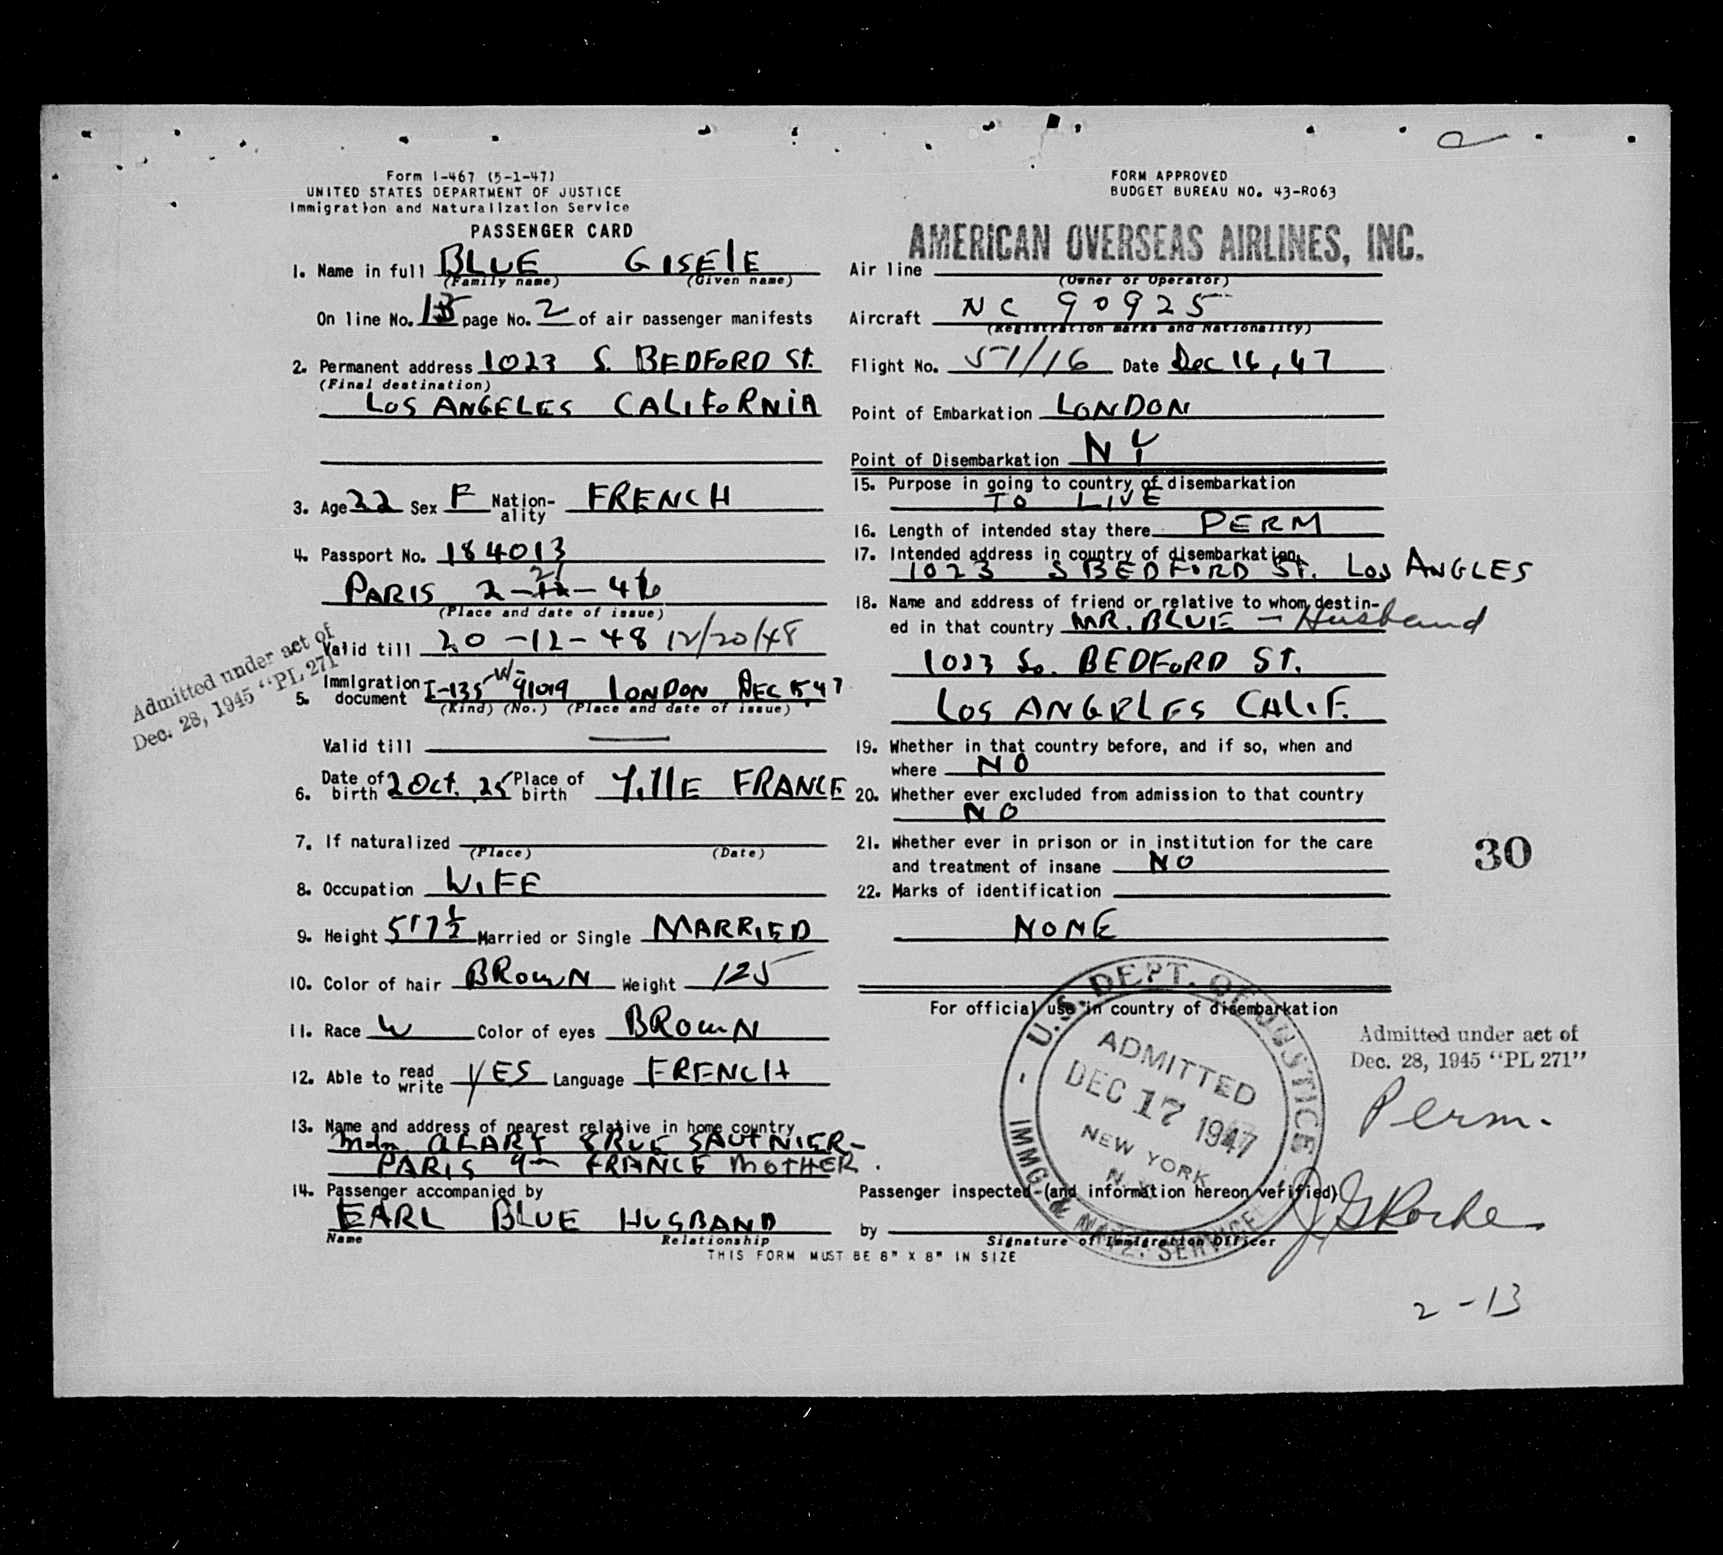 Form I-467 (5-1-47)
UNITED STATES DEPARTMENT OF JUSTICE
Immigration and Naturalization Service
PASSENGER CARD
1. Name in full BLUE GISElE
(Family name) (Given name)
On line No. page No. 2 of air passenger manifests
2. Permanent address 1023 S. BEDFORD St.
(Final destination)
LOS ANGELES CALIFORNIA
3. Age 22 Sex F Nation-ality FRENCH
4. Passport No. 184013
PARIS 2- -46
(Place and date of issue)
Valid till 20-12-48 12/20/48
Admitted under act of
Dec. 28, 1945 "PL 271"
5. Immigration document I-135 LONDON DEC 15 47
(Kind) (No.) (Place and date of issue)
Valid till —
6. Date of birth 2 Oct. 25 Place of birth FRANCE
7. If naturalized
(Place) (Date)
8. Occupation WIFE
9. Height 5'7½ Married or Single MARRIED
10. Color of hair BROWN Weight 125
11. Race W Color of eyes BROWN
12. Able to read write YES Language FRENCH
13. Name and address of nearest relative in home country
ALARY 8 RUE SAUTNIER-
PARIS 9 FRANCE MOTHER.
14. Passenger accompanied by
EARL BLUE HUSBAND
Name Relationship
THIS FORM MUST BE 8" X 8" IN SIZE
FORM APPROVED
BUDGET BUREAU NO. 43-R063
AMERICAN OVERSEAS AIRLINES, INC.
Air line
(Owner or Operator)
Aircraft NC 90925
(Registration marks and Nationality)
Flight No. 51/16 Date Dec 16, 47
Point of Embarkation LONDON
Point of Disembarkation NY
15. Purpose in going to country of disembarkation
TO LIVE
16. Length of intended stay there PERM
17. Intended address in country of disembarkation
1023 S BEDFORD ST. LOS ANGLES
18. Name and address of friend or relative to whom destin-
ed in that country MR. BLUE - Husband
1023 So. BEDFORD ST.
LOS ANGELES CALIF.
19. Whether in that country before, and if so, when and
where NO
20. Whether ever excluded from admission to that country
NO
21. Whether ever in prison or in institution for the care
and treatment of insane NO
22. Marks of identification
NONE
30
For official use in country of disembarkation
U.S. DEPT. OF JUSTICE
IMMG. & NATZ. SERVICE
ADMITTED
DEC 17 1947
NEW YORK
N.Y.
Admitted under act of
Dec. 28, 1945 "PL 271"
Perm.
Passenger inspected (and information hereon verified)
by
Signature of Immigration Officer
2-13